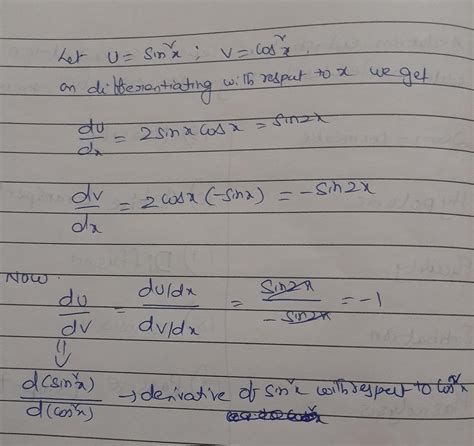 Let U = sin²x ; V = cos²x.
on differentiating with respect to x we get
du/dx = 2sinx cosx = sin2x
dv/dx = 2cosx (-sinx) = -sin2x
Now.
du/dv = (du/dx)/(dv/dx) = sin2x/-sin2x = -1
⇓
d(sin²x)/d(cos²x) → derivative of sin²x with respect to cos²x